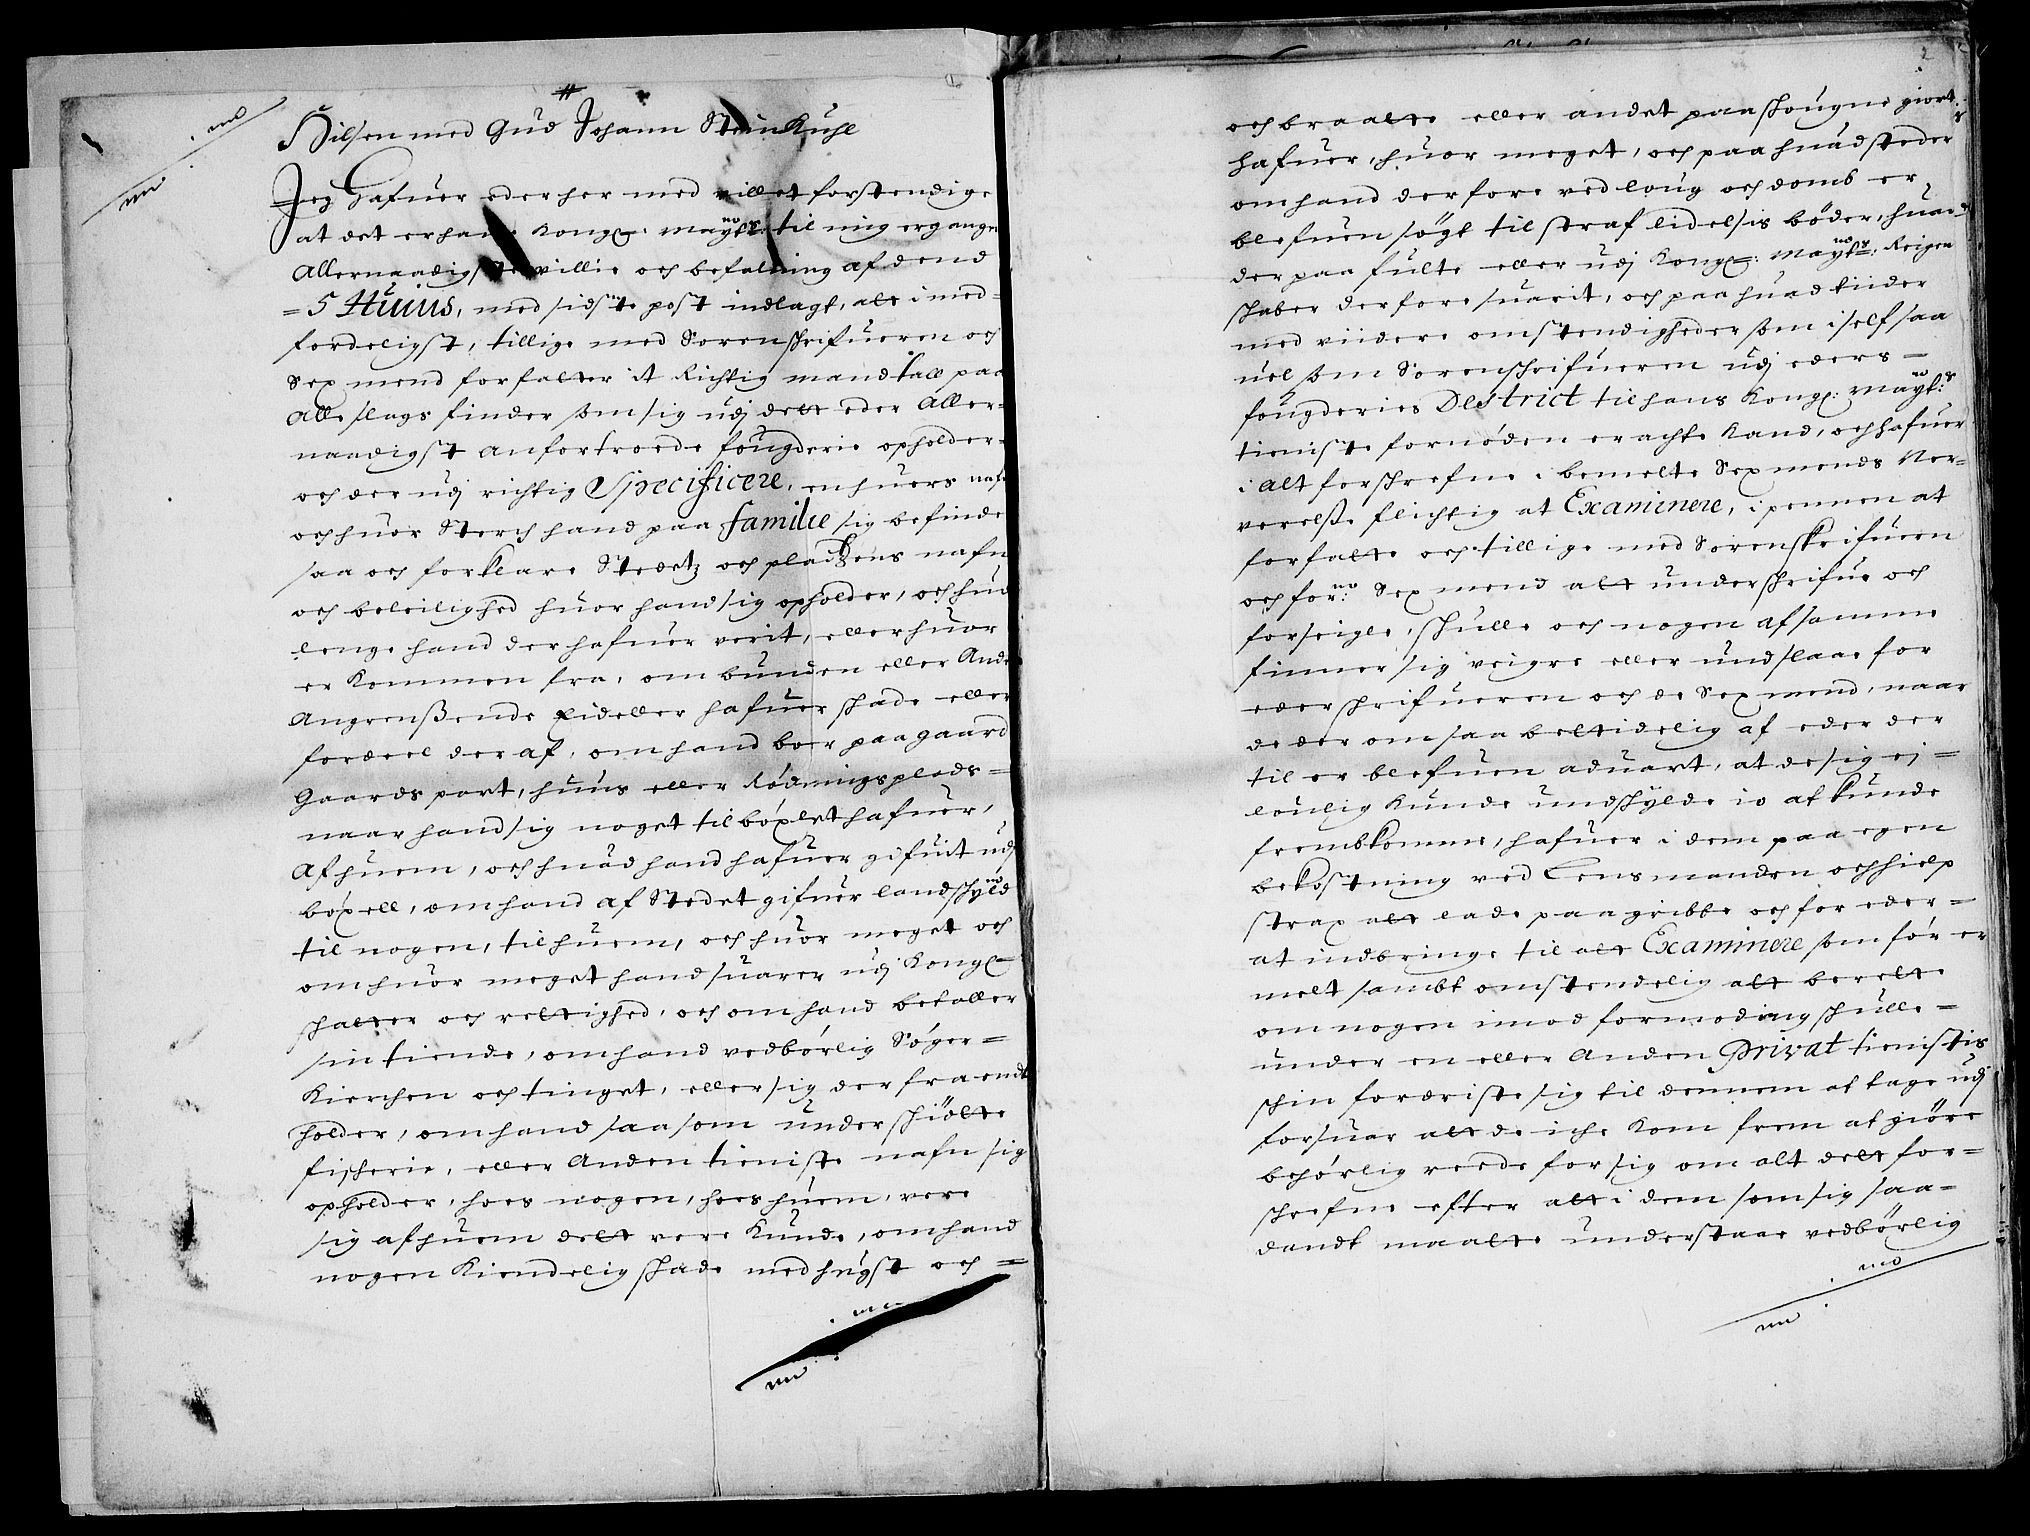 Hilsen med Gud Johann Steinkuhl
Jeg hafuer eder her med villet forstendige
at det er hans Kongl: Maytz: til mig ergangne
Allernaadigste villie och befalning af dend
= 5 Huius, med sidste post indlagt, att i med=
fordeligst, tillige med Sorenschrifueren och
Sex mend forfatter it Richtig mandtall paa
Alle slags finder som sig udj dett eder Aller=
naadigst anfortroede fougderie opholder=
och der udj richtig Specificere, en huers nafn
och huor Sterch hand paa familie sig befinder
saa och forklare Stedetz och pladtzens nafn
och beleilighed huor hand sig opholder, och huor
lenge hand der hafuer verit, eller huor
er Kommen fra, om bunden eller Andre
Angrenssende Eideller hafuer schade eller
fordeel der af, om hand boer paa gaard
Gaards part, huus eller Rødningsplads=
naar hand sig noget tilbøxlet hafuer,
Af huem, och huad hand hafuer gifuit udj
bøxell, om hand af Stedet gifuer landschyld
til nogen, til huem, och huor meget och
om huor meget hand suarer udj Kongl=
schatter och rettighed, och om hand betaller
sin tiende, om hand vedbørlig Søger=
Kierchen och tinget, eller sig der fra endt
holder, om hand saa som under schiøtte
fischerie, eller Anden tieniste nafn sig
opholder, hoes nogen, hoes huem, vere
sig af huem dett vere Kunde, om hand
nogen Kiendelig schade med hugst och =
och braatte eller andet paa schougne giort
hafuer, huor meget, och paa huad steder
om hand derfore ved loug och domb er
blefuen søgt til straf lidelsis bøder, huad
der paa fulte eller udj Kongl: Maytz: Reigen
schaber derfore suarit, och paa huad tiider
med viidere omstendigheder som i self saa
uel som Sorenschrifueren udj eders=
fougderies Destrict til hans Kongl: Maytz:
tieniste fornøden eracht Kand, och hafuer
i alt forschrefne i bemelte Sex mends Ner=
verelsse flichtig at Examinere, i pennen at
forfatte och tillige med Sorenskrifueren
och forn: Sex mend att underschrifue och
forseigle, schulle och nogen af samme
finner sig veigre eller undslaae for
eder schrifueren och de Sex mend, naar
de der om saa beltidelig af eder der
til er blefuen aduart, at de sig ej=
loulig Kunde undschylde io at kunde
frembkomme, hafuer i dem paa egen
bekostning ved Lensmanden och hielp
strax att lade paa gribbe och for eder=
at indbringe til att Examinere som før er
melt sambt omstendelig att berette
om nogen imod formoding schulle=
under en eller Anden Privat tienistis
schin fordriste sig til dennem at tage udj
forsuar att de iche Kom frem at giøre
behørlig reede for sig om alt dett for=
schrefne efter att i dem som sig saa=
dandt maatte understaae vedbørlig